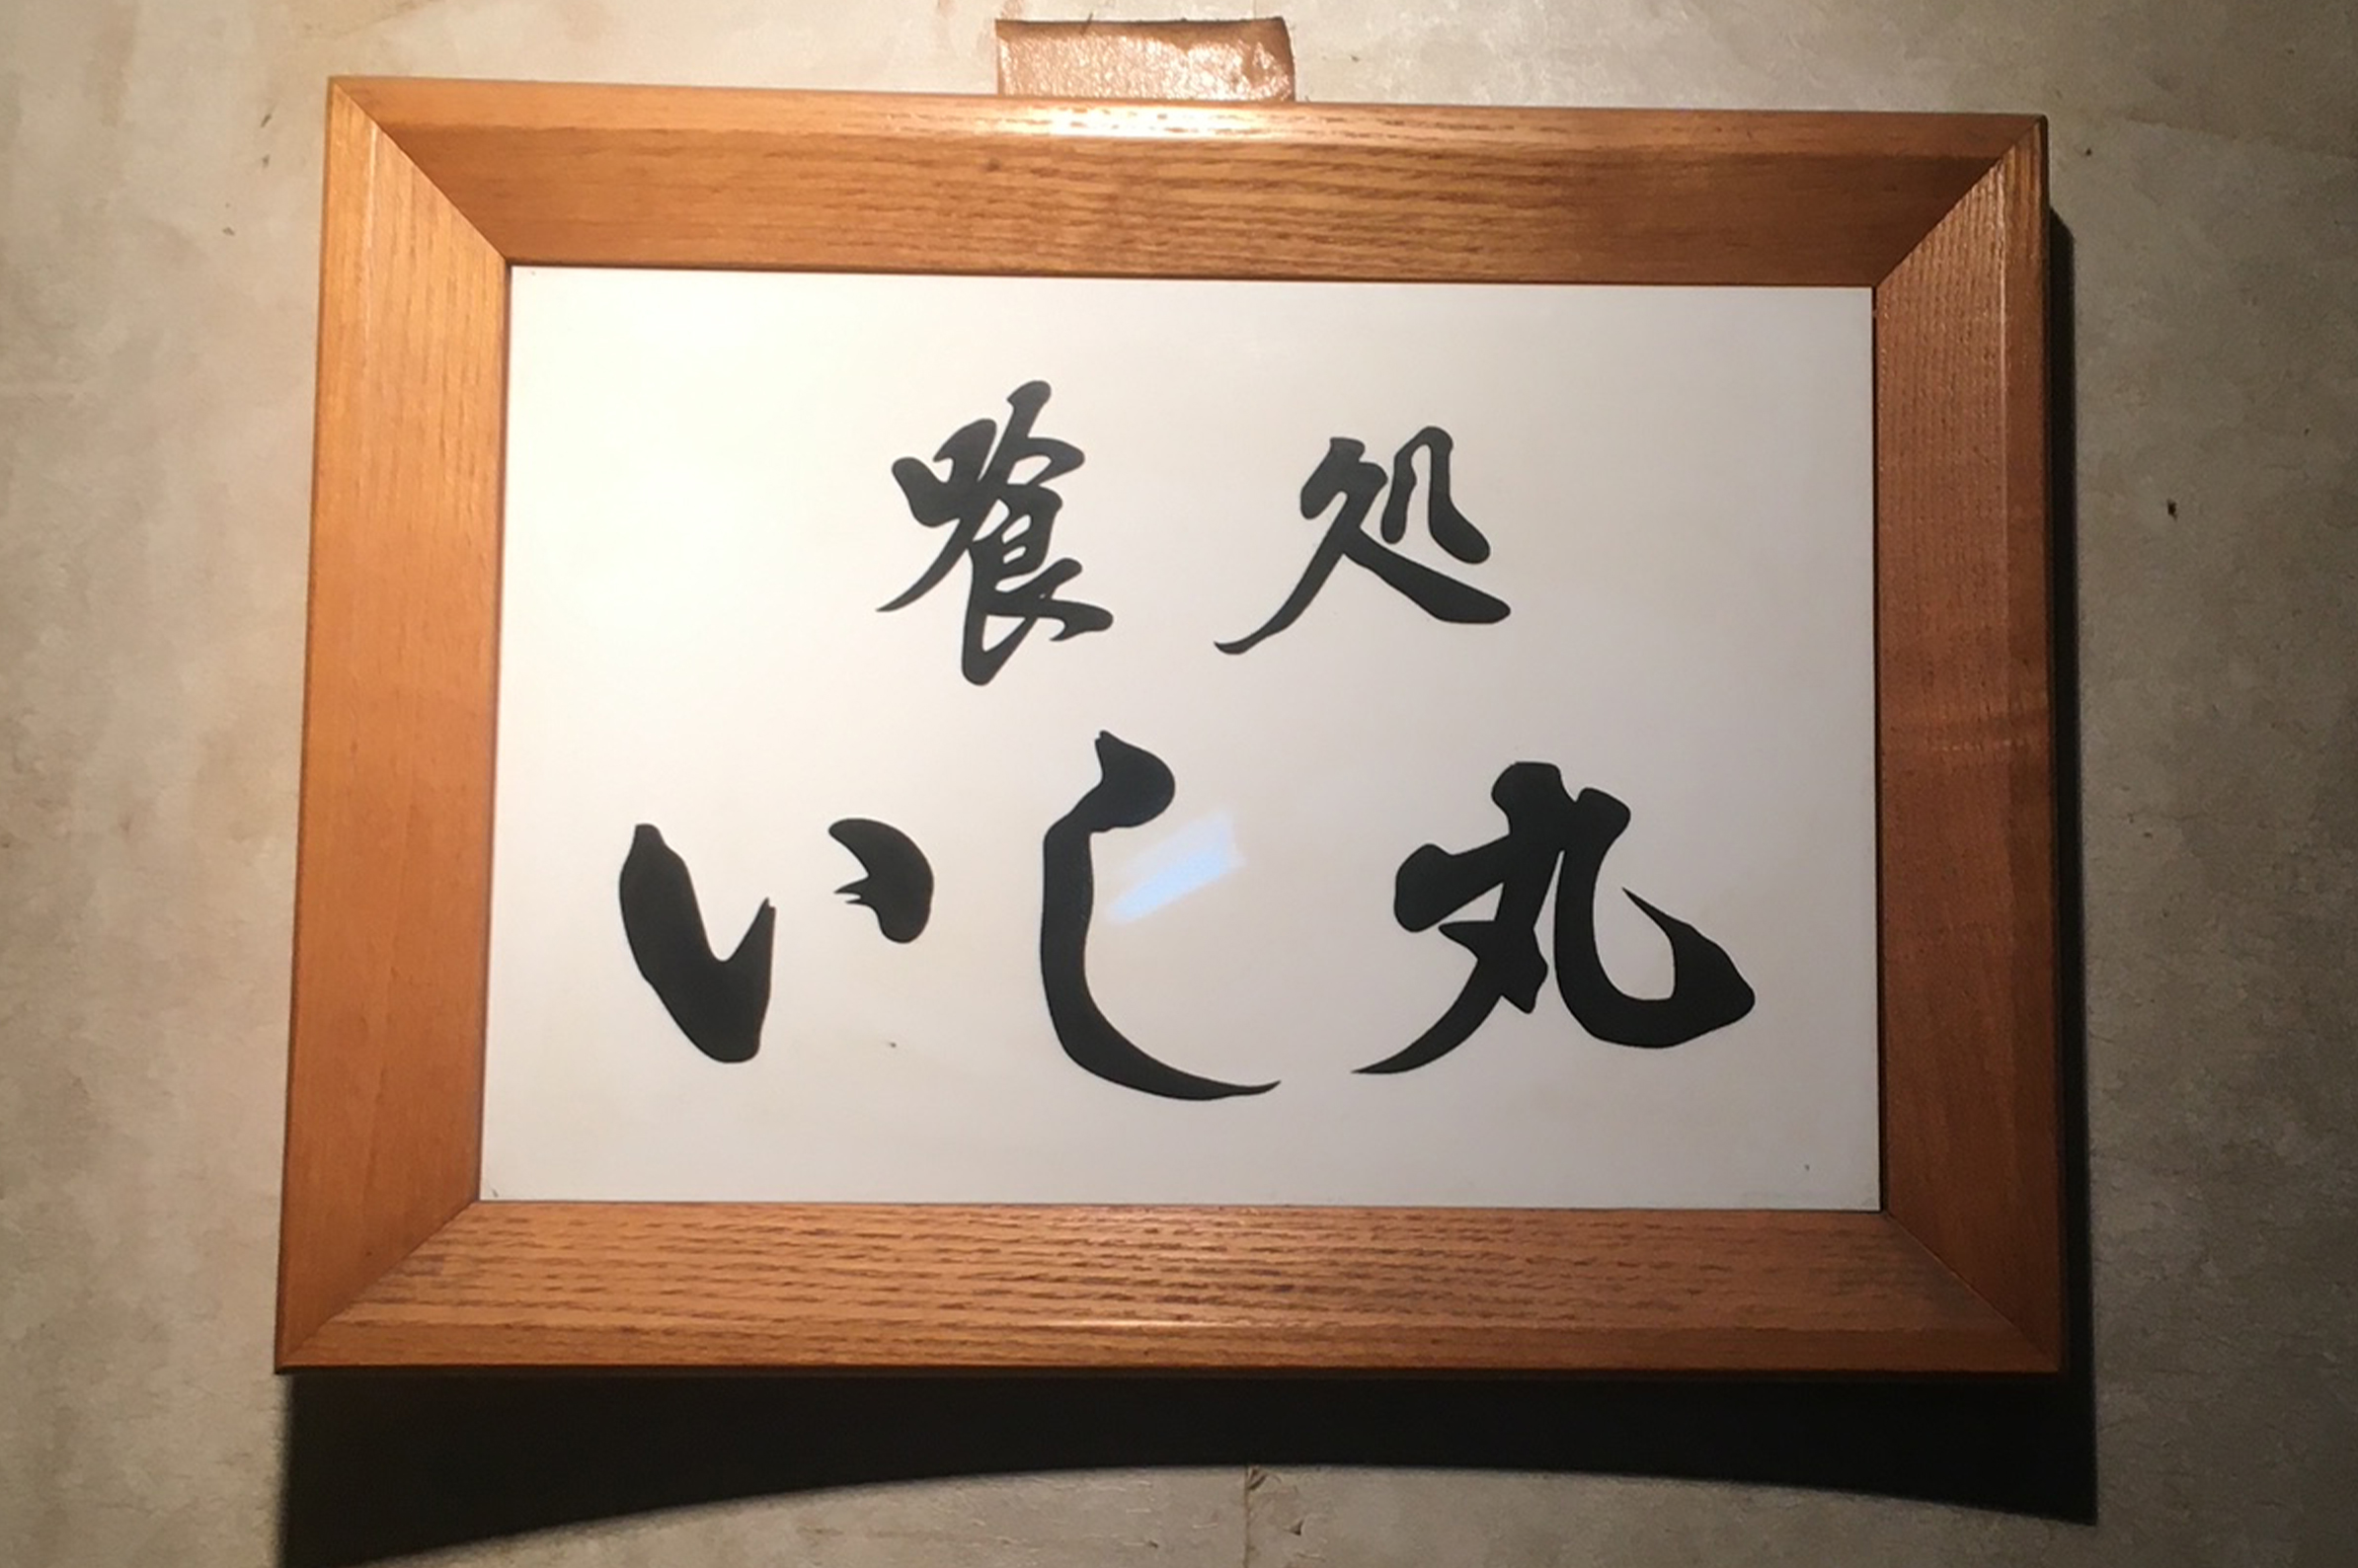 喰処
いし丸